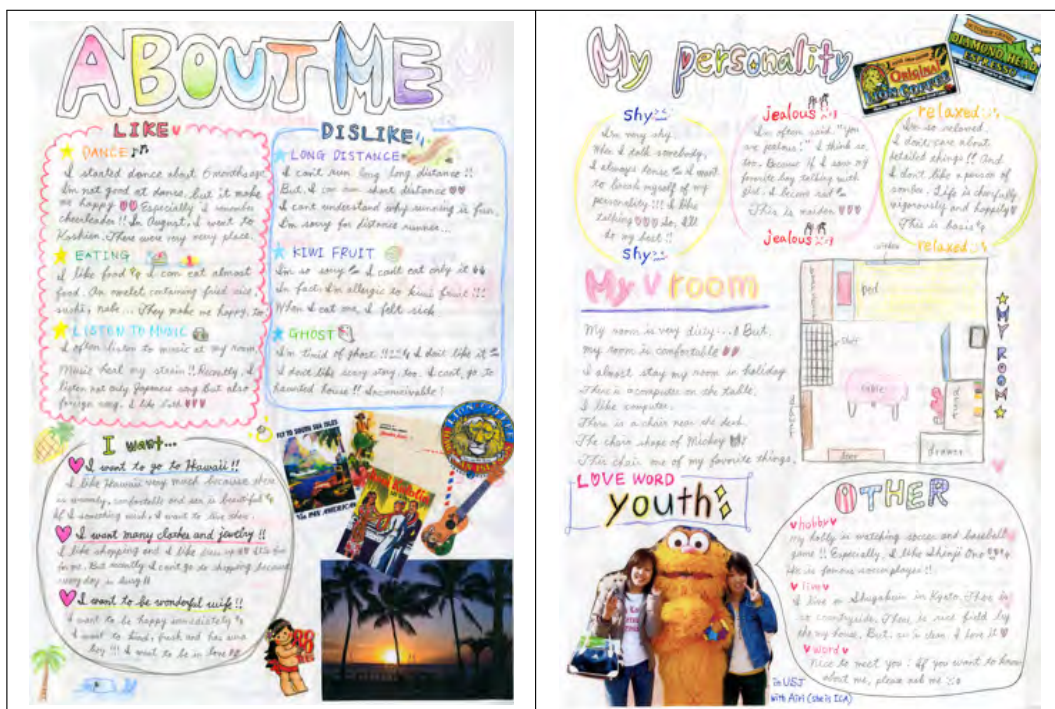 ABOUT ME
LIKE
DANCE
I started dance about 6 months ago.
I'm not good at dance, but it make
me happy Especially, I remember
cheerleader!! In August, I went to
Koshien. There were very merry place.
EATING
I like food I can eat almost
food. An omelet containing fried rice,
sushi, nabe... They make me happy, too.
LISTEN TO MUSIC
I often listen to music at my room.
Music heal my strain!! Recently, I
listen not only Japanese song But also
foreign song. I like both
DISLIKE
LONG DISTANCE
I can't run long long distance!!
But, I can run short distance
I can't understand why running is fun.
I'm sorry for distance runner...
KIWI FRUIT
I'm so sorry I can't eat only it
In fact, I'm allergic to kiwi fruit!!!
When I eat one, I felt sick.
GHOST
I'm timid of ghost!! I don't like it
I don't like scary story, too. I can't go to
haunted house!! Inconceivable!
I want...
I want to go to Hawaii!!
I like Hawaii very much because there
is warmly, comfortable and sea is beautiful
If I something wish, I want to live there.
I want many clothes and jewelry!!
I like shopping and I like dress up It's fun
for me. But recently I can't go to shopping because
every day is busy!!
I want to be wonderful wife!!
I want to be happy immediately
I want to kind, frank and has
boy!!! I want to be in love
FLY TO SOUTH SEA ISLES
Via PAN AMERICAN
LION COFFEE
My personality
ORIGINAL
LION COFFEE
DIAMOND HEAD
ESPRESSO
shy
I'm very shy.
When I talk somebody,
I always tense I want
to myself of my
personality!!! I like
talking So, I'll
do my best!!
shy
jealous
I'm often said "you
are jealous!" I think so,
too. Because If I saw my
favorite boy talking with
girl. I become sad
This is maiden
jealous
relaxed
I'm so relaxed.
I don't care about
detailed things!! And
I don't like a person of
somber. Life is cheerfully
vigorously and happily
This is basis
relaxed
My room
My room is very dirty...! But,
my room is comfortable
I almost stay my room in holiday
There is a computer on the table.
I like computer.
There is a chair near the desk.
The chair shape of Mickey
This chair one of my favorite things.
window
bed
shelf
table
door
drawer
MY ROOM
LOVE WORD
youth
in USJ
with Airi (she is ICA)
OTHER
hobby
my hobby is watching soccer and baseball
game!! Especially, I like Shinji Ono
He is famous soccer player!!
live
I live in Shugakuin in Kyoto. There is
so countryside. There is rice field by
the my house. But, air is clean. I love it
word
Nice to meet you! If you want to know
about me, please ask me